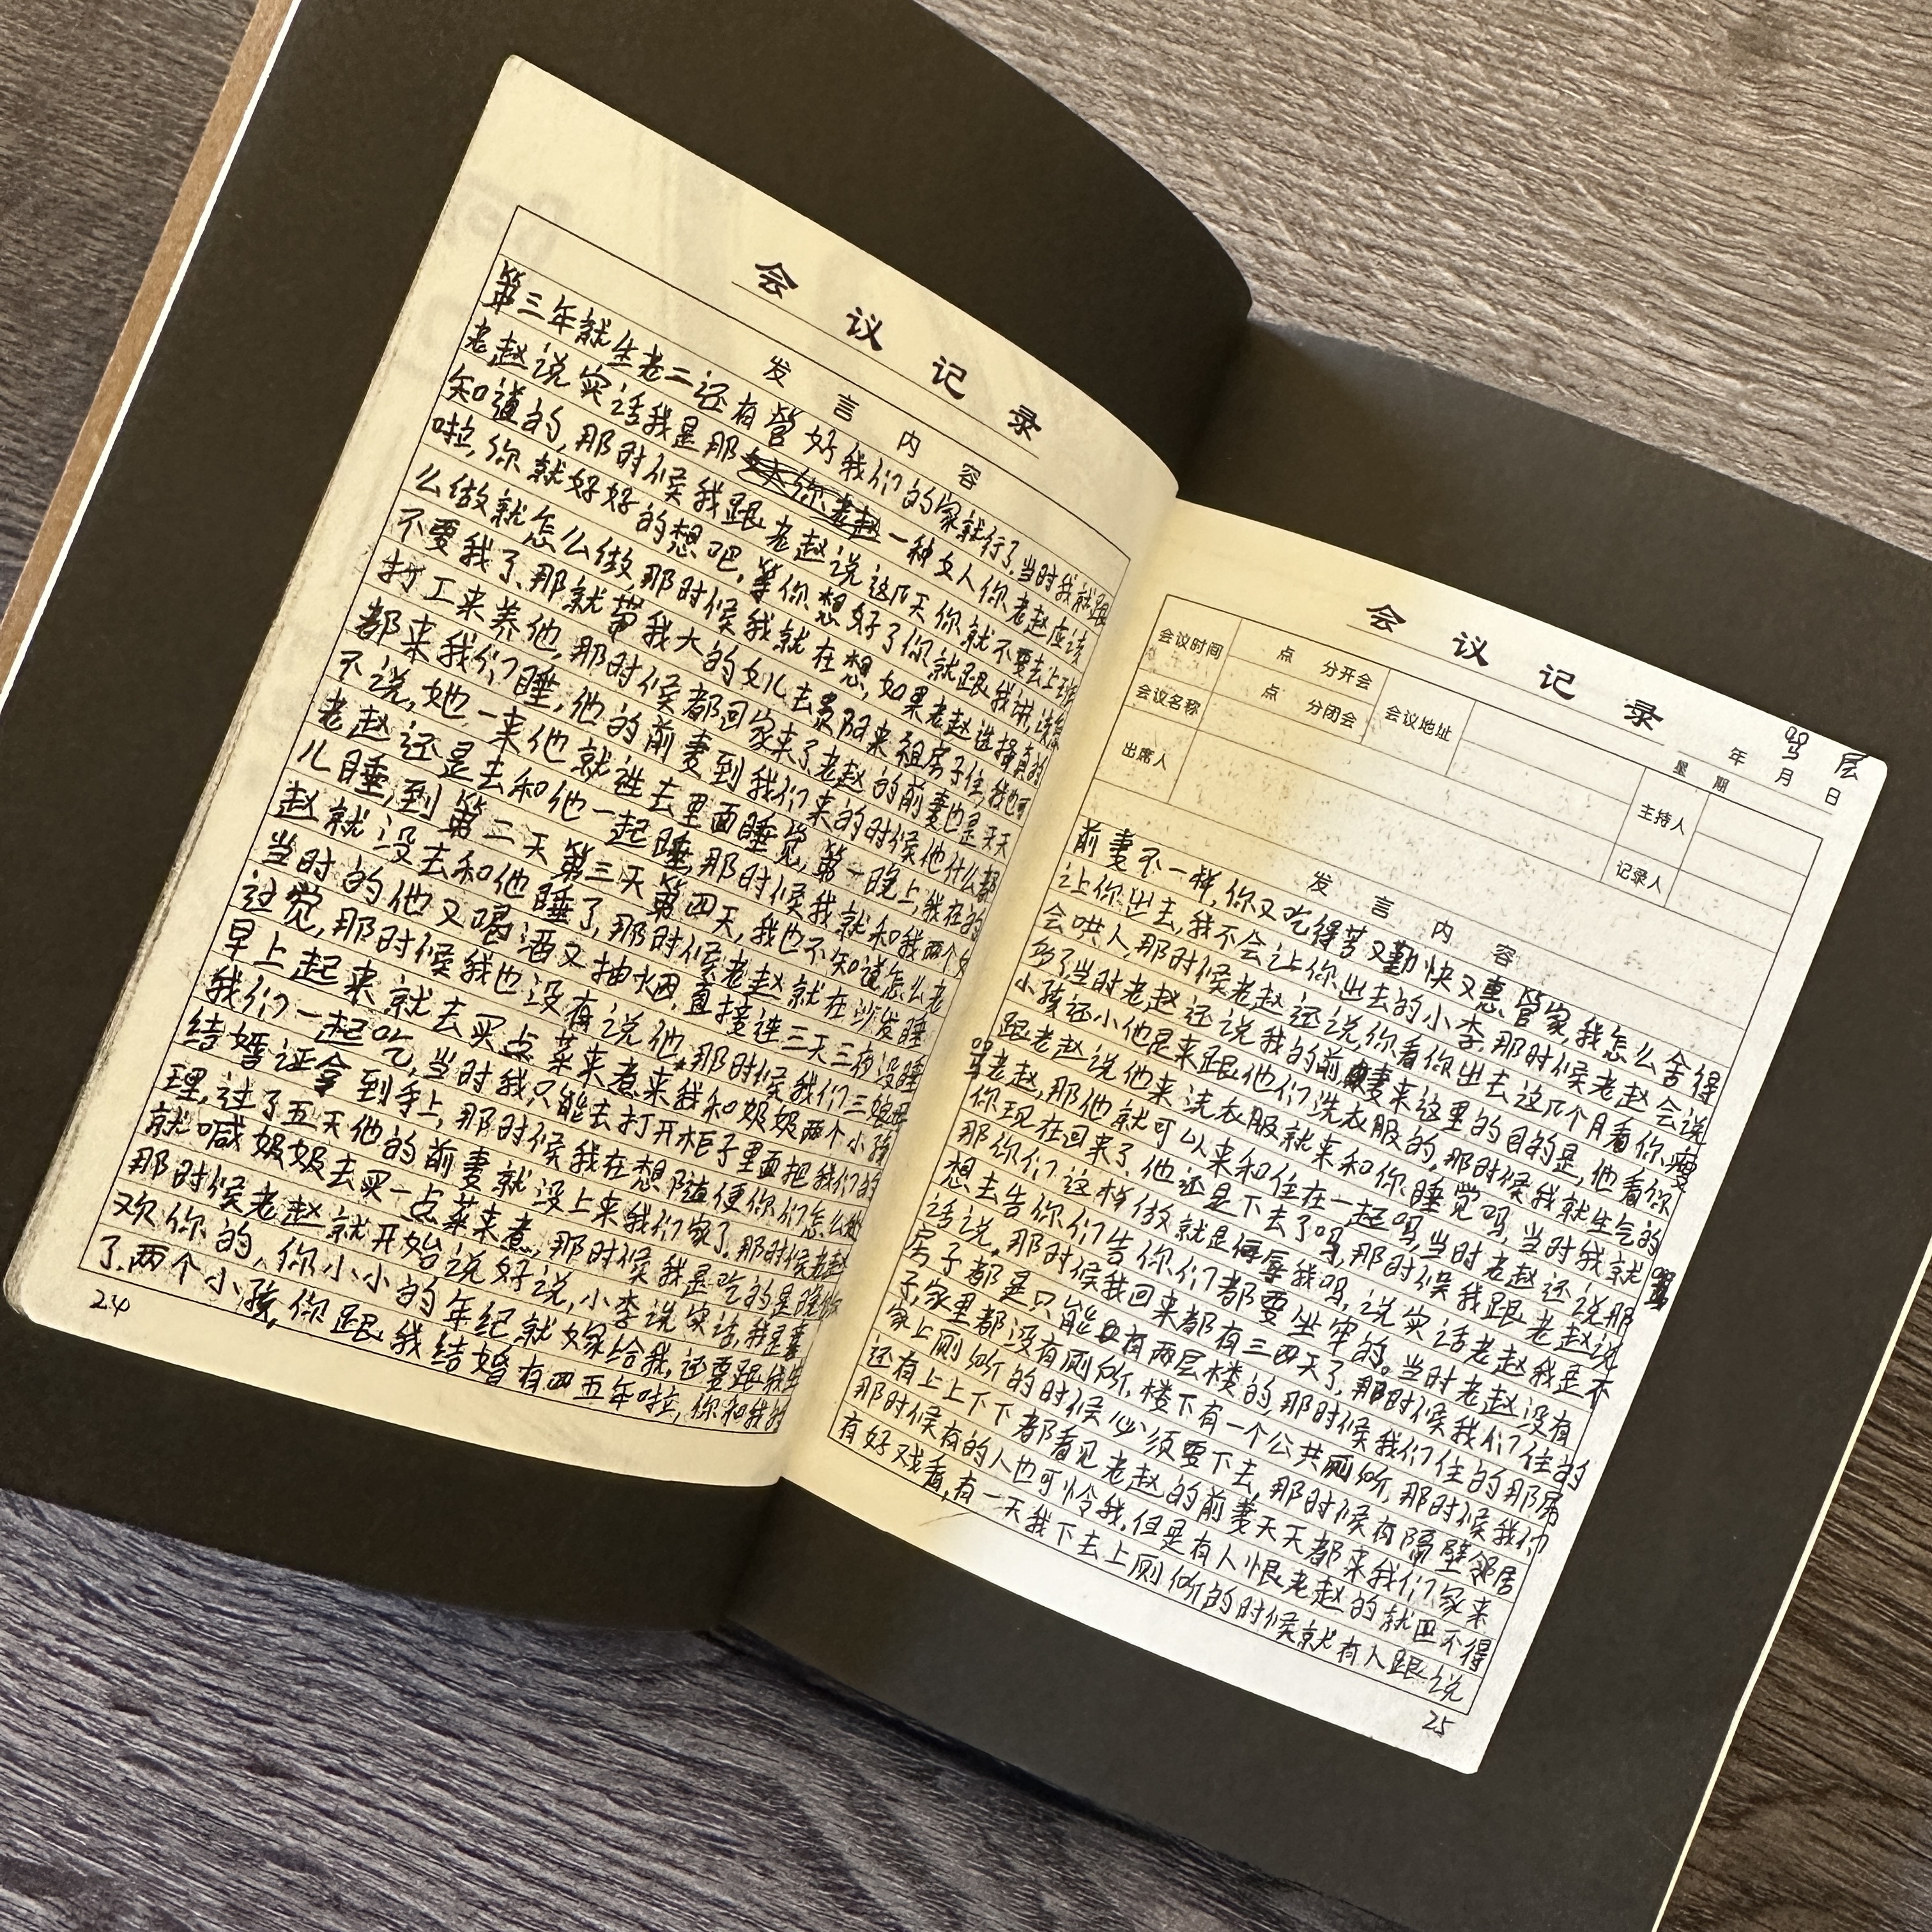 会议记录
发言内容
第三年就生老二还有管好我们的家就行了.当时我就跟
老赵说实话我是那一种女人你老赵应该
知道的,那时候我跟老赵说这几天你就不要去上班
啦,你就好好的想吧,等你想好了你就跟我讲,该怎
么做就怎么做,那时候我就在想,如果老赵选择真的
不要我了、那就带我大的女儿去贵阳来租房子住,我也可
打工来养他,那时候都回家来了老赵的前妻也是天天
都来我们睡,他的前妻到我们来的时候他什么都
不说,她一来他就进去里面睡觉,第一晚上,我在的
老赵还是去和他一起睡,那时候我就和我两个女
儿睡,到第二天第三天第四天,我也不知道怎么老
赵就没去和他睡了,那时候老赵就在沙发睡
当时的他又喝酒又抽烟,直接连三天三夜没睡
过觉,那时候我也没有说他,那时候我们三娘母
早上起来就去买点菜来煮来我和奶奶两个小孩
我们一起吃,当时我只能去打开柜子里面把我们的
结婚证拿到手上,那时候我在想随便你们怎么处
理,过了五天他的前妻就没上来我们家了.那时候老赵
就喊奶奶去买一点菜来煮,那时候我是吃的是晚饭
那时候老赵就开始说好说,小李说实话,我是喜
欢你的,你小小的年纪就嫁给我,还要跟我生
了.两个小孩,你跟我结婚有四五年啦,你和我的
24
会议记录
年 月 日
星期
会议时间 点 分开会 会议地址 主持人
点 分闭会
会议名称 记录人
出席人
发言内容
前妻不一样,你又吃得苦又勤快又惠管家,我怎么舍得
让你出去,我不会让你出去的小李.那时候老赵会说
会哄人,那时候老赵还说你看你出去这几个月看你瘦
多了,当时老赵还说我的前妻来这里的目的是,他看你
小孩还小他是来跟他们洗衣服的,那时候我就生气的
跟老赵说他来洗衣服就来和你睡觉吗,当时我就骂
骂老赵,那他就可以来和住在一起吗,当时老赵还说那
你现在回来了.他还是下去了吗,那时候我跟老赵说
那你们这样做就是侮辱我吗,说实话老赵我是不
想去告你们告你们都要坐牢的。当时老赵没有
话说.那时候我回来都有三四天了,那时候我们住的
房子都是只能有两层楼的,那时候我们住的那房
子,家里都没有厕所,楼下有一个公共厕所,那时候我们
家上厕所的时候必须要下去,那时候有隔壁邻居
还有上上下下都看见老赵的前妻天天都来我们家来
那时候有的人也可怜我,但是有人恨老赵的就巴不得
有好戏看,有一天我下去上厕所的时候就有人跟说
25